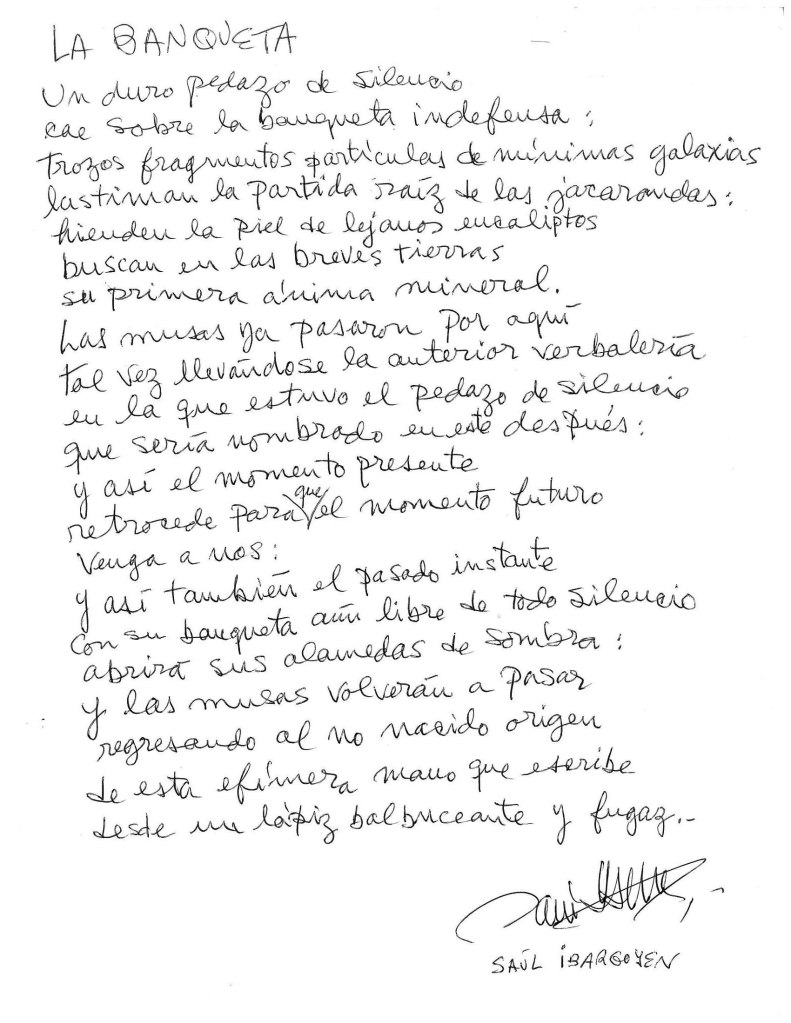 LA BANQUETA
Un duro pedazo de silencio
cae sobre la banqueta indefensa:
trozos fragmentos partículas de mínimas galaxias
lastiman la partida raíz de las jacarandas:
hienden la piel de lejanos eucaliptos
buscan en las breves tierras
su primera ánima mineral.
Las musas ya pasaron por aquí
tal vez llevándose la anterior verbalería
en la que estuvo el pedazo de silencio
que sería nombrado en este después:
y así el momento presente
retrocede para que el momento futuro
venga a nos:
y así también el pasado instante
con su banqueta aún libre de todo silencio
abrirá sus alamedas de sombra:
y las musas volverán a pasar
regresando al no nacido origen
de esta efímera mano que escribe
desde un lápiz balbuceante y fugaz.-
SAÚL IBARGOYEN